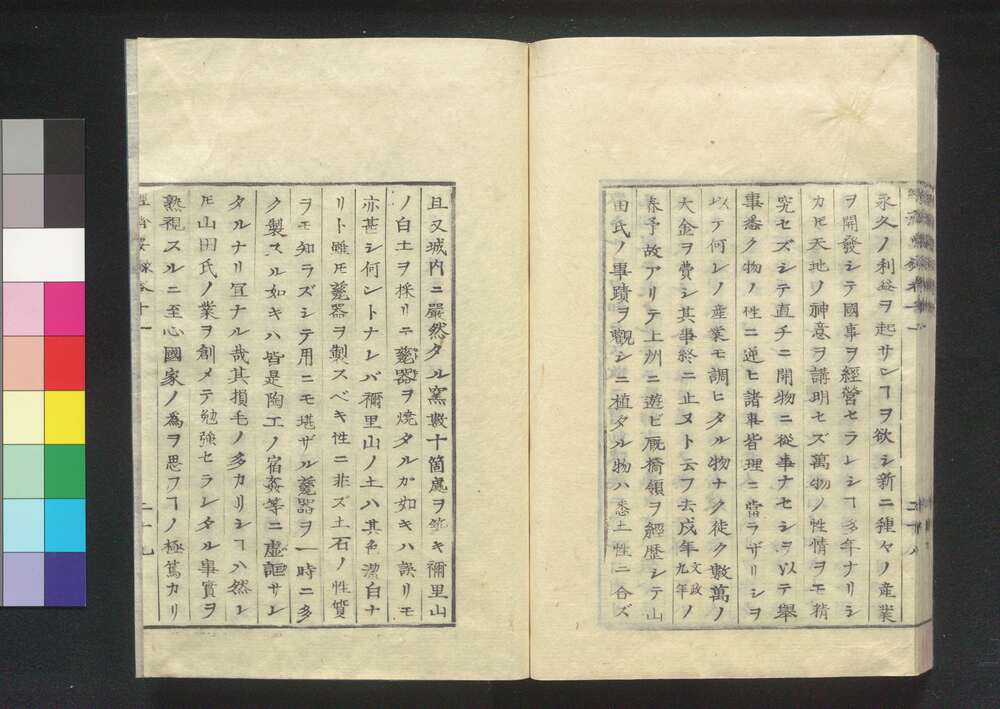 永久ノ利益ヲ起サンヿヲ欲シ新ニ種々ノ産業
ヲ開發シテ國事ヲ經營セラレシヿ多年ナリシ
カ𪜈天地ノ神意ヲ講明セズ萬物ノ性情ヲモ精
究セズシテ直チニ開物ニ從事ナセシヲ以テ擧
事悉ク物ノ性ニ逆ヒ諸事皆理ニ當ラザリシヲ
以テ何レノ産業モ調ヒタル物ナク徒ク數萬ノ
大金ヲ費シ其事終ニ止ヌト云フ去戌年文政九年ノ
春予故アリテ上州ニ遊ビ厩橋領ヲ經歴シテ山
田氏ノ事蹟ヲ觀シニ植タル物ハ悉土性ニ合ズ
二十八
且又城内ニ嚴然タル窯數十箇處ヲ築キ禰里山
ノ白土ヲ採リニ甕器ヲ燒タルガ如キハ誤リモ
亦甚シ何ントナレバ禰里山ノ土ハ其色潔白ナ
リト雖𪜈甕器ヲ製スベキ性ニ非ズ土石ノ性質
ヲモ知ラズシテ用ニモ堪ザル甕器ヲ一時ニ多
ク製スル如キハ皆是陶工ノ宿姦等ニ虚謳サレ
タルナリ宜ナル哉其損毛ノ多カリシヿハ然レ
𪜈山田氏ノ業ヲ創メテ勉強セラレタル事實ヲ
熟視スルニ至心國家ノ爲ヲ思フヿノ極篤カリ
二十九